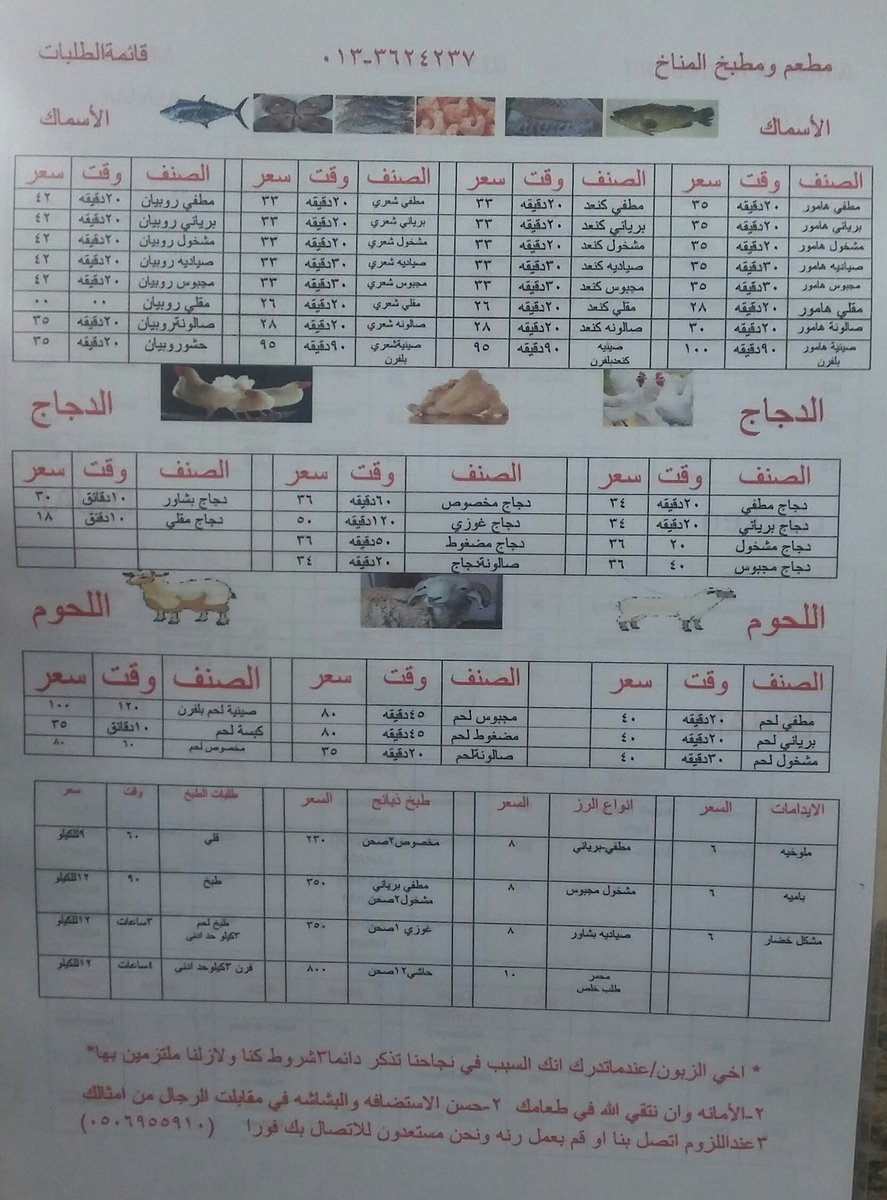 مطعم ومطبخ المناخ ٠١٣-٣٦٢٤٢٣٧ قائمةالطلبات
الأسماك الأسماك
الصنف وقت سعر الصنف وقت سعر الصنف وقت سعر الصنف وقت سعر
مطفي هامور ٢٠دقيقه ٣٥ مطفي كنعد ٢٠دقيقه ٣٣ مطفي شعري ٢٠دقيقه ٣٣ مطفي روبيان ٢٠دقيقه ٤٢
برياني هامور ٢٠دقيقه ٣٥ برياني كنعد ٢٠دقيقه ٣٣ برياني شعري ٢٠دقيقه ٣٣ برياني روبيان ٢٠دقيقه ٤٢
مشخول هامور ٢٠دقيقه ٣٥ مشخول كنعد ٢٠دقيقه ٣٣ مشخول شعري ٢٠دقيقه ٣٣ مشخول روبيان ٢٠دقيقه ٤٢
صياديه هامور ٣٠دقيقه ٣٥ صياديه كنعد ٣٠دقيقه ٣٣ صياديه شعري ٣٠دقيقه ٣٣ صياديه روبيان ٢٠دقيقه ٤٢
مجبوس هامور ٣٠دقيقه ٣٥ مجبوس كنعد ٣٠دقيقه ٣٣ مجبوس شعري ٣٠دقيقه ٣٣ مجبوس روبيان ٢٠دقيقه ٤٢
مقلي هامور ٢٠دقيقه ٢٨ مقلي كنعد ٢٠دقيقه ٢٦ مقلي شعري ٢٠دقيقه ٢٦ مقلي روبيان ٠٠ ٠٠
صالونة هامور ٢٠دقيقه ٣٠ صالونه كنعد ٢٠دقيقه ٢٨ صالونه شعري ٢٠دقيقه ٢٨ صالونةروبيان ٢٠دقيقه ٣٥
صينية هامور بلفرن ٩٠دقيقه ١٠٠ صينيه كنعدبلفرن ٩٠دقيقه ٩٥ صينيةشعري بلفرن ٩٠دقيقه ٩٥ حشوروبيان ٢٠دقيقه ٣٥
الدجاج الدجاج
الصنف وقت سعر الصنف وقت سعر الصنف وقت سعر
دجاج مطفي ٢٠دقيقه ٣٤ دجاج مخصوص ٦٠دقيقه ٣٦ دجاج بشاور ١٠دقائق ٣٠
دجاج برياني ٢٠دقيقه ٣٤ دجاج غوزي ١٢٠دقيقه ٥٠ دجاج مقلي ١٠دقئق ١٨
دجاج مشخول ٢٠ ٣٦ دجاج مضغوط ٥٠دقيقه ٣٦
دجاج مجبوس ٤٠ ٣٦ صالونةدجاج ٢٠دقيقه ٣٤
اللحوم اللحوم
الصنف وقت سعر الصنف وقت سعر الصنف وقت سعر
مطفي لحم ٢٠دقيقه ٤٠ مجبوس لحم ٤٥دقيقه ٨٠ صينية لحم بلفرن ١٢٠ ١٠٠
برياني لحم ٢٠دقيقه ٤٠ مضغوط لحم ٤٥دقيقه ٨٠ كبسة لحم ١٠دقائق ٣٥
مشخول لحم ٣٠دقيقه ٤٠ صالونةلحم ٢٠دقيقه ٣٥ مخصوص لحم ٦٠ ٨٠
الايدامات السعر انواع الرز السعر طبخ ذبائح السعر طلبات الطبخ وقت سعر
ملوخيه ٦ مطفي-برياني ٨ مخصوص٢صحن ٢٣٠ قلي ٦٠ ٩للكيلو
باميه ٦ مشخول مجبوس ٨ مطفي برياني مشخول٢صحن ٣٥٠ طبخ ٩٠ ١٢للكيلو
مشكل خضار ٦ صياديه بشاور ٨ غوزي ١صحن ٣٥٠ طبخ لحم ٣كيلو حد ادنى ٣ساعات ١٢للكيلو
محمر طلب خلص ١٠ حاشي١٢صحن ٨٠٠ فرن ٣كيلوحد ادنى ٤ساعات ١٢للكيلو
* اخي الزبون/عندماتدرك انك السبب في نجاحنا تذكر دائما٣شروط كنا ولازلنا ملتزمين بها*
٢-الأمانه وان نتقي الله في طعامك ٢-حسن الاستضافه والبشاشه في مقابلت الرجال من امثالك
٣عنداللزوم اتصل بنا او قم بعمل رنه ونحن مستعدون للاتصال بك فورا (٠٥٠٦٩٥٥٩١٠)